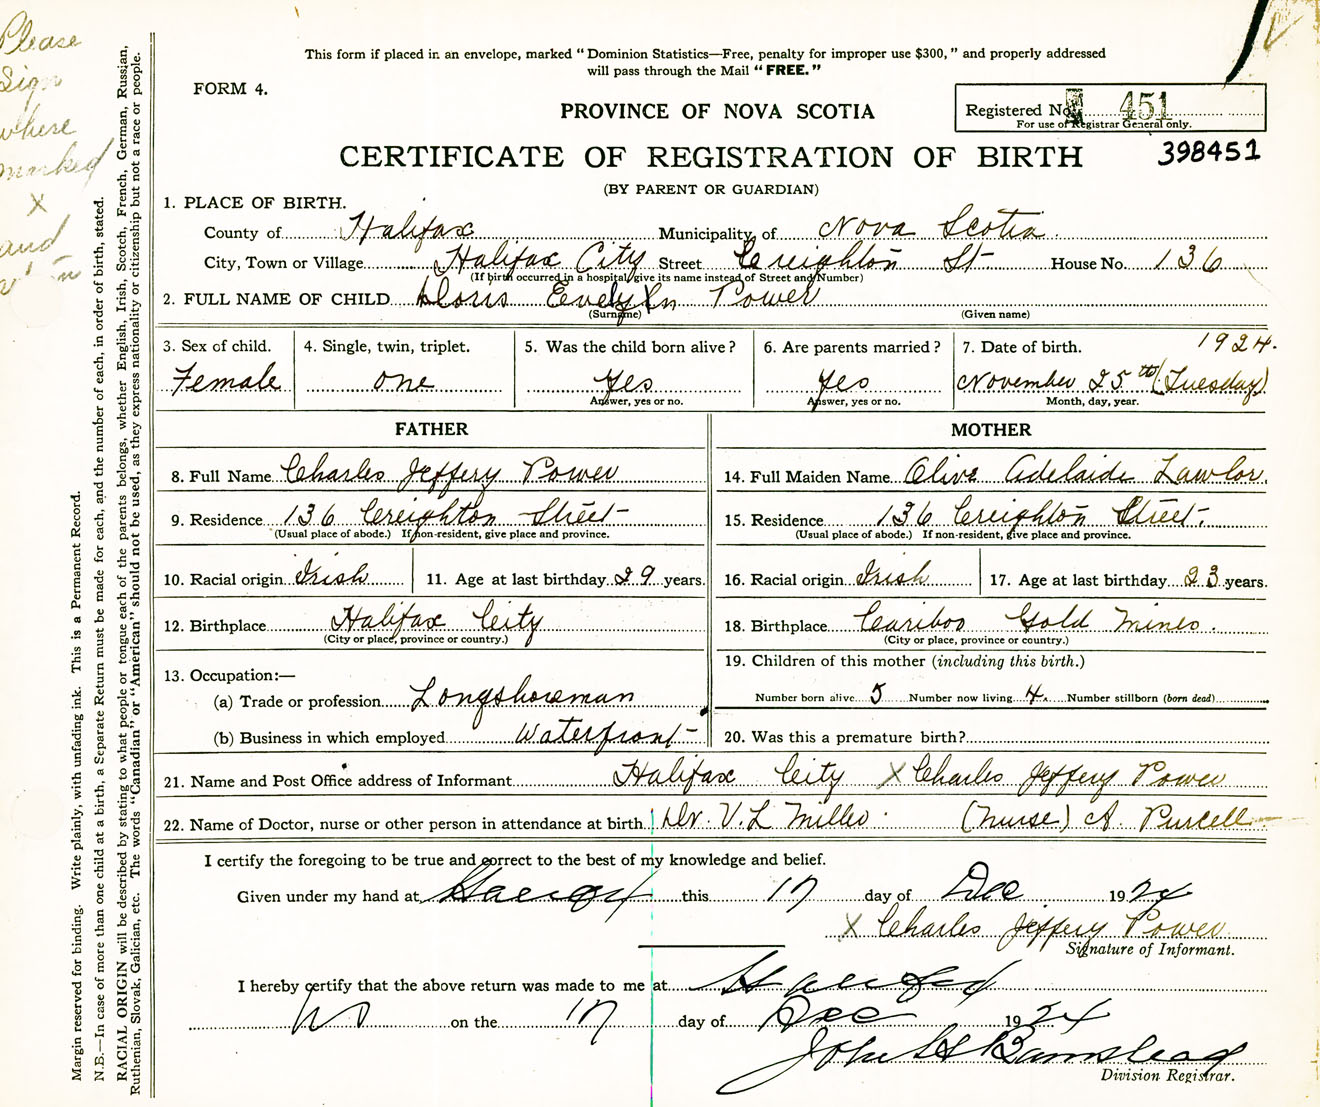 Please
Sign
where
marked
x
and
This form if placed in an envelope, marked "Dominion Statistics—Free, penalty for improper use $300," and properly addressed
will pass through the Mail "FREE."
FORM 4.
PROVINCE OF NOVA SCOTIA
Registered No. 451
For use of Registrar General only.
CERTIFICATE OF REGISTRATION OF BIRTH
398451
(BY PARENT OR GUARDIAN)
1. PLACE OF BIRTH.
County of Halifax Municipality of Nova Scotia.
City, Town or Village Halifax City Street Creighton St House No. 136
(If birth occurred in a hospital give its name instead of Street and Number)
2. FULL NAME OF CHILD Doris Evelyn Power
(Surname) (Given name)
3. Sex of child. 4. Single, twin, triplet. 5. Was the child born alive? 6. Are parents married? 7. Date of birth. 1924.
Female one Yes Yes November 25th (Tuesday)
Answer, yes or no. Answer, yes or no. Month, day, year.
FATHER MOTHER
8. Full Name Charles Jeffery Power 14. Full Maiden Name Olive Adelaide Lawlor.
9. Residence 136 Creighton Street 15. Residence 136 Creighton Street.
(Usual place of abode.) If non-resident, give place and province. (Usual place of abode.) If non-resident, give place and province.
10. Racial origin Irish 11. Age at last birthday 29 years. 16. Racial origin Irish 17. Age at last birthday 23 years.
12. Birthplace Halifax City 18. Birthplace Cariboo Gold Mines.
(City or place, province or country.) (City or place, province or country.)
13. Occupation:— 19. Children of this mother (including this birth.)
(a) Trade or profession Longshoreman Number born alive 5 Number now living 4 Number stillborn (born dead)
(b) Business in which employed Waterfront 20. Was this a premature birth?
21. Name and Post Office address of Informant Halifax City X Charles Jeffery Power
22. Name of Doctor, nurse or other person in attendance at birth Dr. V. L Miller. (Nurse) A. Purcell
I certify the foregoing to be true and correct to the best of my knowledge and belief.
Given under my hand at Halifax this 17 day of Dec 1924
X Charles Jeffery Power
Signature of Informant.
I hereby certify that the above return was made to me at Halifax
on the 17 day of Dec 1924
John H Barnstead
Division Registrar.
Margin reserved for binding. Write plainly, with unfading ink. This is a Permanent Record.
N.B.—In case of more than one child at a birth, a Separate Return must be made for each, and the number of each, in order of birth, stated.
RACIAL ORIGIN will be described by stating to what people or tongue each of the parents belongs, whether English, Irish, Scotch, French, German, Russian,
Ruthenian, Slovak, Galician, etc. The words "Canadian" or "American" should not be used, as they express nationality or citizenship but not a race or people.